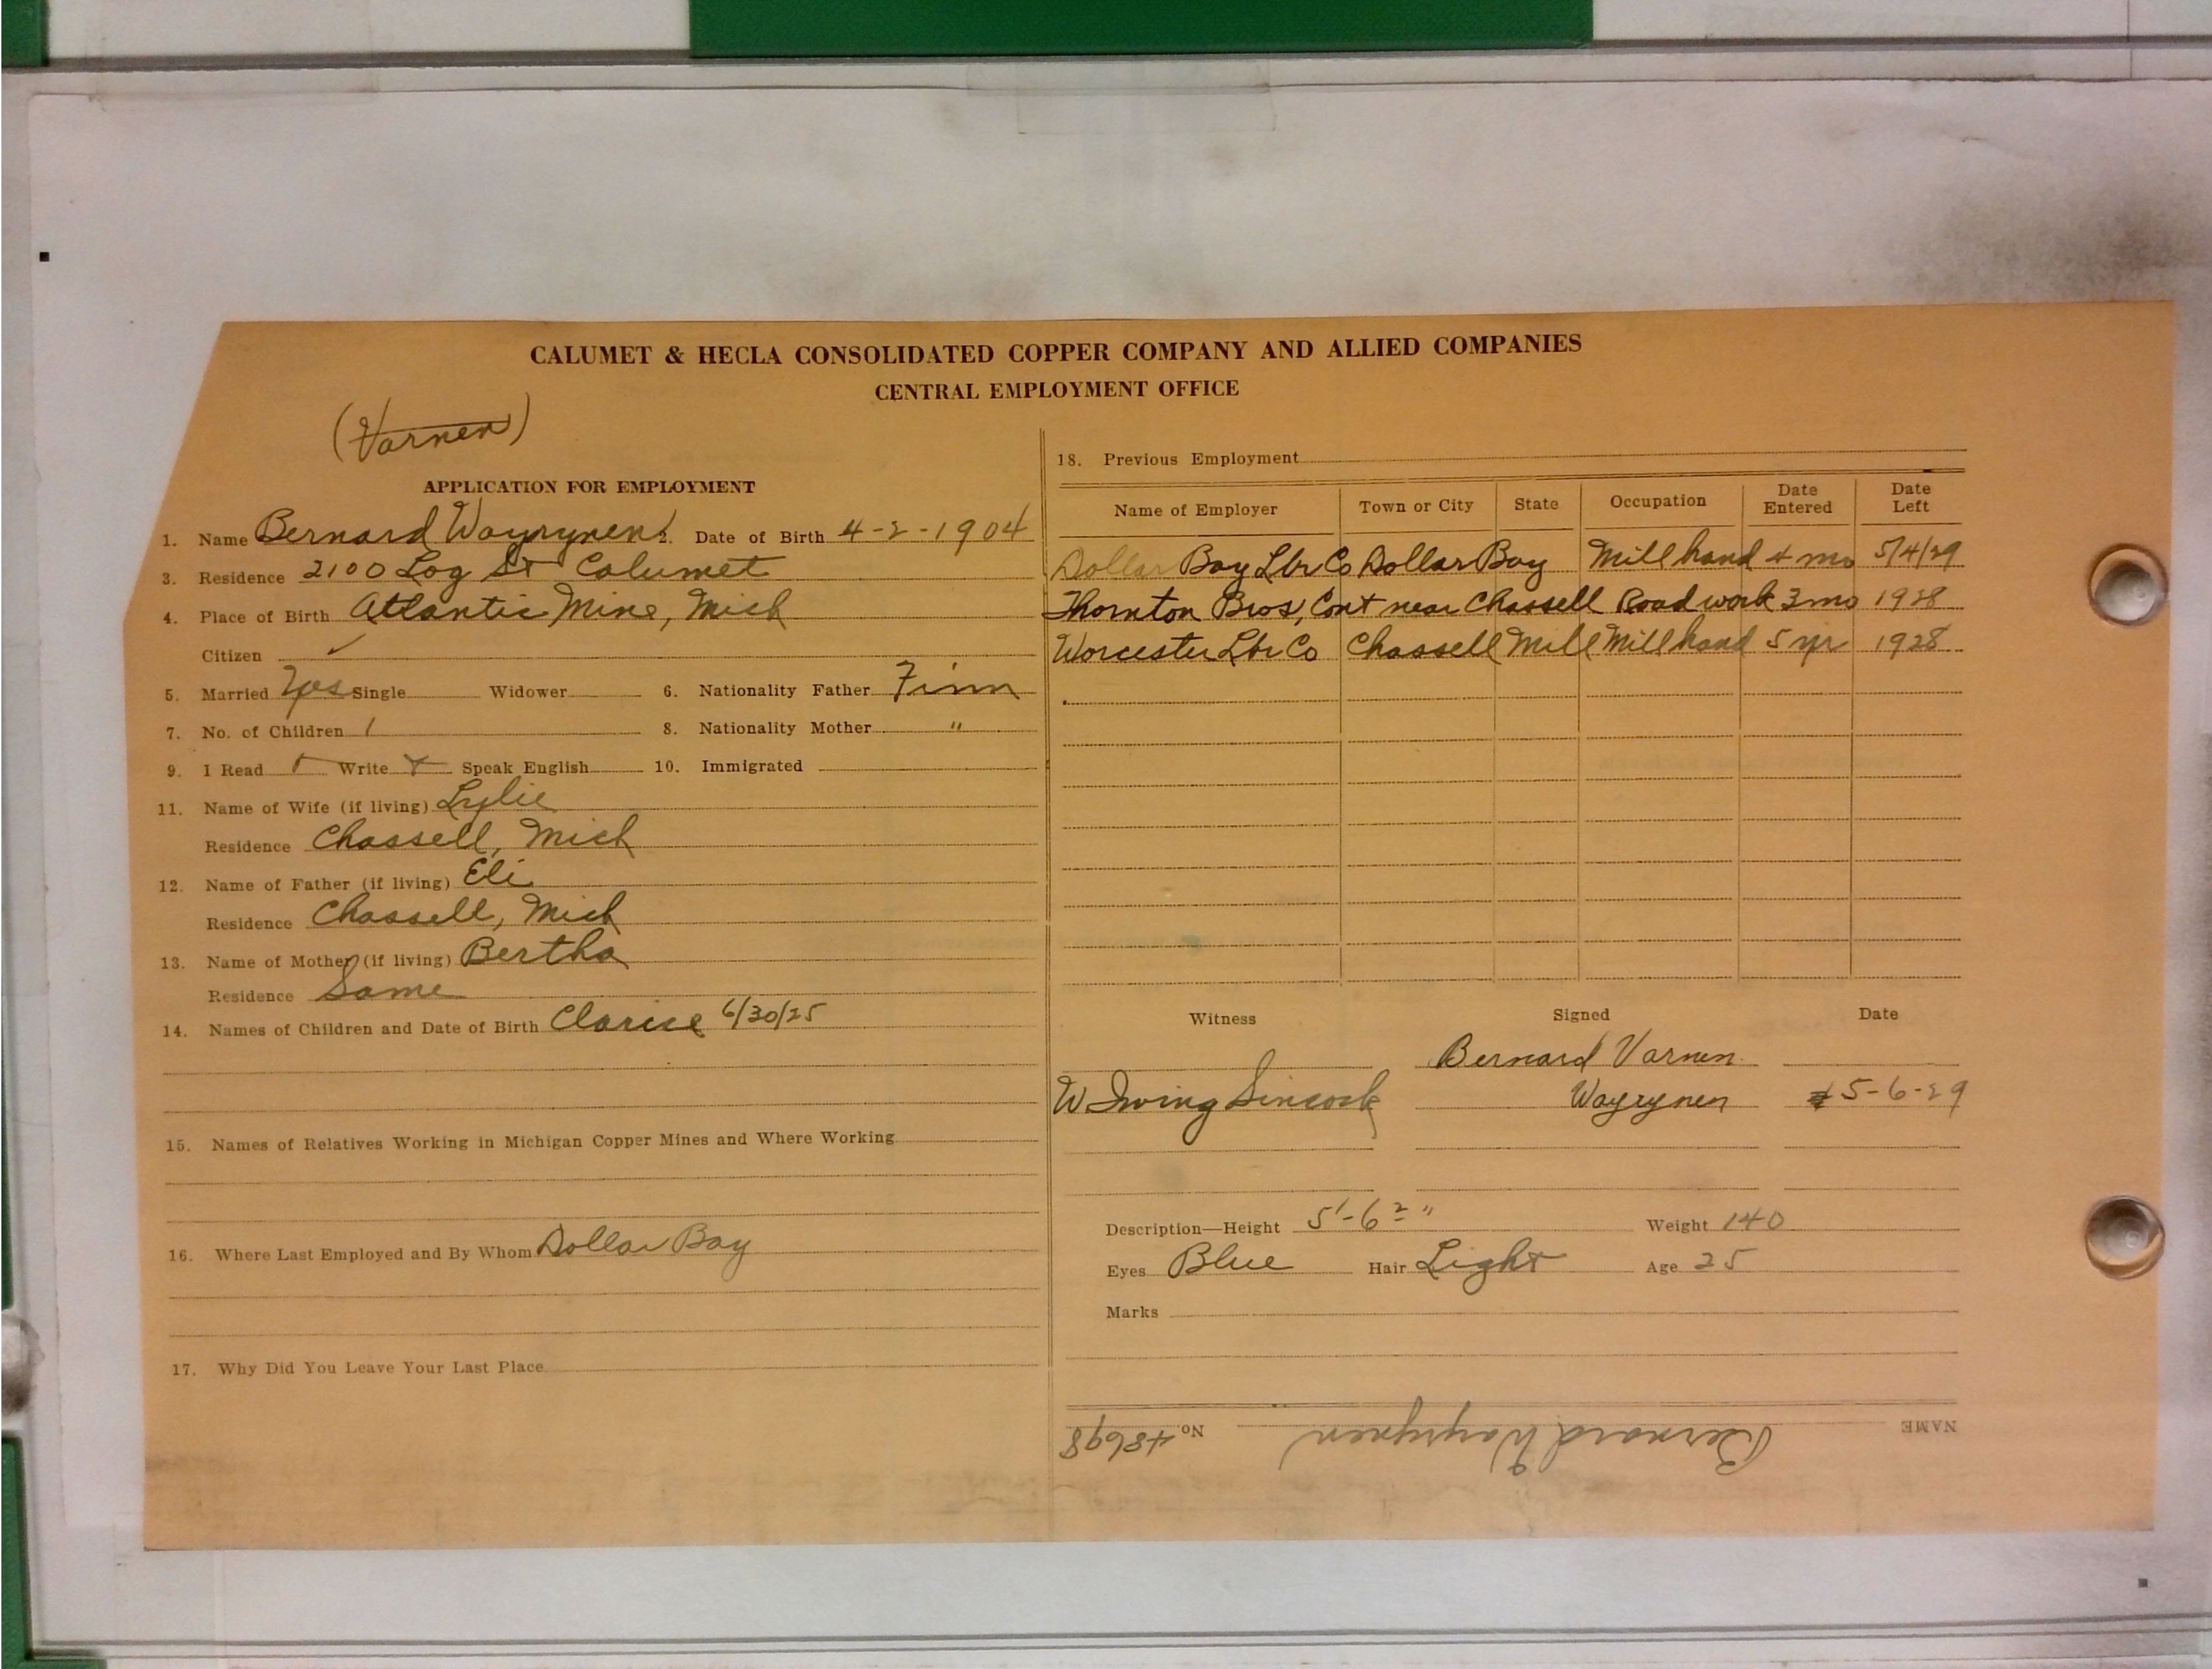 CALUMET & HECLA CONSOLIDATED COPPER COMPANY AND ALLIED COMPANIES
CENTRAL EMPLOYMENT OFFICE
(Varnen)
APPLICATION FOR EMPLOYMENT
1. Name Bernard Wayrynen 2. Date of Birth 4-2-1904
3. Residence 2100 Log St Calumet
4. Place of Birth Atlantic Mine, Mich
Citizen ✓
5. Married Yes Single Widower 6. Nationality Father Finn
7. No. of Children 1 8. Nationality Mother "
9. I Read Write Speak English 10. Immigrated
11. Name of Wife (if living) Lylie
Residence Chassell, Mich
12. Name of Father (if living) Eli
Residence Chassell, Mich
13. Name of Mother (if living) Bertha
Residence Same
14. Names of Children and Date of Birth Clarice 6/30/25
15. Names of Relatives Working in Michigan Copper Mines and Where Working
16. Where Last Employed and By Whom Dollar Bay
17. Why Did You Leave Your Last Place
18. Previous Employment
Name of Employer Town or City State Occupation Date Entered Date Left
Dollar Bay Lbr Co Dollar Bay Mill hand 4 mo 5/4/29
Thornton Bros, Cont near Chassell Road work 3 mo 1928
Worcester Lbr Co Chassell Mill Mill hand 5 yr 1928
Witness Signed Date
Bernard Varnen
W Irving Sincock Wayrynen 5-6-29
Description—Height 5'-6 2" Weight 140
Eyes Blue Hair Light Age 25
Marks
NAME Bernard Wayrynen No 48698